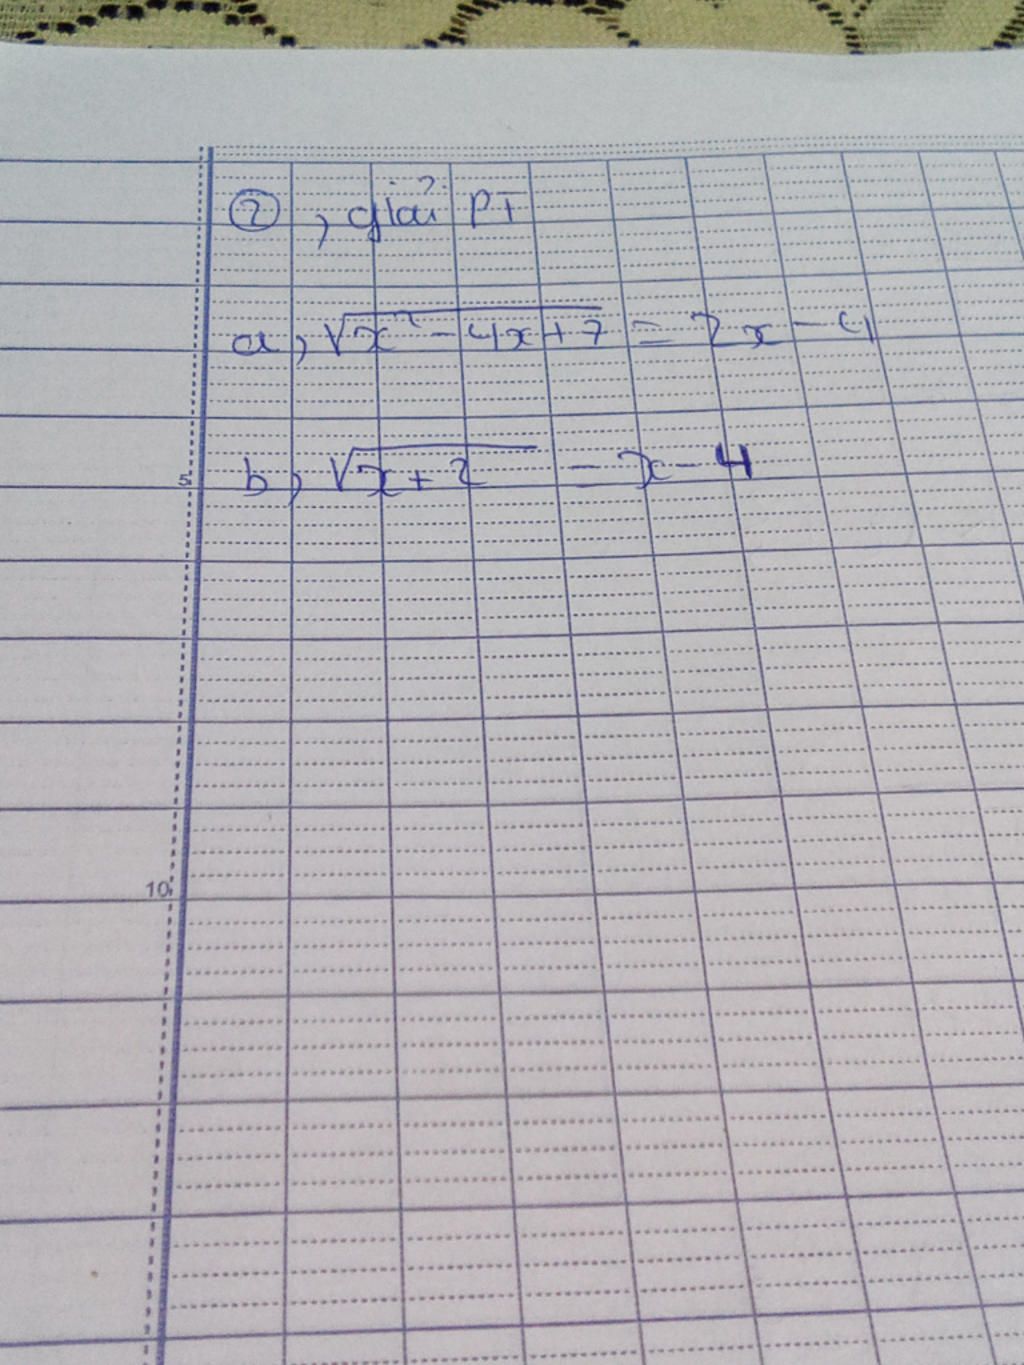 ②, giải PT
a, √x² - 4x + 7 = 2x - 4
5 b, √x + 2 = x - 4
10